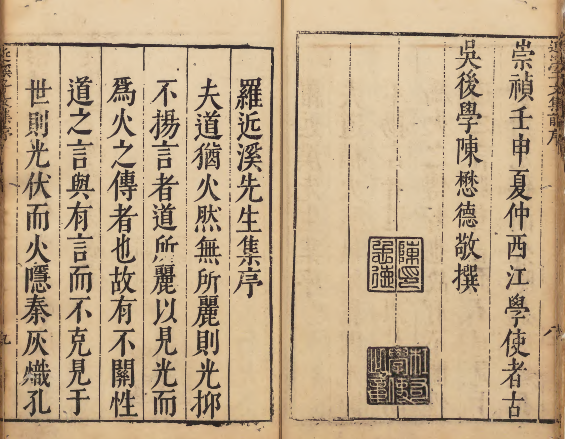 崇禎壬申夏仲西江學使者古
吳後學陳懋德敬撰
羅近溪先生集序
夫道猶火然無所麗則光抑
不揚言者道所麗以見光而
爲火之傳者也故有不關性
道之言與有言而不克見于
世則光伏而火隱秦灰熾孔